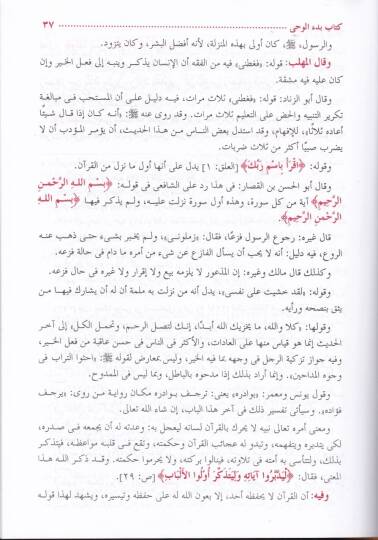 كتاب بدء الوحى ٣٧
والرسول، ﷺ، كان أولى بهذه المنزلة، لأنه أفضل البشر، وكان يتزود.
وقال المهلب: قوله: «فغطنى» فيه من الفقه أن الإنسان يذكر وينبه إلى فعل الخير وإن
كان عليه فيه مشقة.
وقال أبو الزناد: قوله: «فغطنى» ثلاث مرات، فيه دليل على أن المستحب فى مبالغة
تكرير التنبيه والحض على التعليم ثلاث مرات. وقد روى عنه ﷺ: «أنه كان إذا قال شيئًا
أعاده ثلاثًا»، للإفهام، وقد استدل بعض الناس من هذا الحديث، أن يؤمر المؤدب أن لا
يضرب صبيًا أكثر من ثلاث ضربات.
وقوله: ﴿اقْرَأْ بِاسْمِ رَبِّكَ﴾ [العلق: ١] يدل على أنها أول ما نزل من القرآن.
وقال أبو الحسن بن القصار: فى هذا رد على الشافعى فى قوله: ﴿بِسْمِ اللهِ الرَّحْمَنِ
الرَّحِيمِ﴾ آية من كل سورة، وهذه أول سورة نزلت عليه، ولم يذكر فيها ﴿بِسْمِ اللهِ
الرَّحْمَنِ الرَّحِيمِ﴾.
قال غيره: رجوع الرسول فزعًا، فقال: «زملونى»، ولم يخبر بشىء حتى ذهب عنه
الروع، فيه دليل: أنه لا يجب أن يسأل الفازع عن شىء من أمره ما دام فى حالة فزعه.
وكذلك قال مالك وغيره: إن المذعور لا يلزمه بيع ولا إقرار ولا غيره فى حال فزعه.
وقوله: «لقد خشيت على نفسى»، يدل أنه من نزلت به ملمة أن له أن يشارك فيها من
يثق بنصحه ورأيه.
وقولها: «كلا والله، ما يخزيك الله أبدًا، إنك لتصل الرحم، وتحمل الكل» إلى آخر
الحديث إنما هو قياس منها على العادات، والأكثر فى الناس فى حسن عاقبة من فعل الخير،
وفيه جواز تزكية الرجل فى وجهه بما فيه الخير، وليس بمعارض لقوله ﷺ: «احثوا التراب فى
وجوه المداحين»، وإنما أراد بذلك إذا مدحوه بالباطل، وبما ليس فى الممدوح.
وقول يونس ومعمر: «بوادره» يعنى: ترجف بوادره مكان رواية من روى: «يرجف
فؤاده»، وسيأتى تفسير ذلك فى آخر هذا الباب، إن شاء الله تعالى.
ومعنى أمره تعالى نبيه لا يحرك بالقرآن لسانه ليعجل به: وعدته له أن يجمعه فى صدره،
لكى يتدبره ويتفهمه، وتبدو له عجائب القرآن وحكمته، وتقع فى قلبه مواعظه، فيتذكر
بذلك، ولتتأسى به أمته فى تلاوته، فينالوا بركته، ولا يحرموا حكمته. وقد ذكر الله هذا
المعنى، فقال: ﴿لِيَدَّبَّرُوا آيَاتِهِ وَلِيَتَذَكَّرَ أُوْلُوا الأَلْبَابِ﴾ [ص: ٢٩].
وفيه: أن القرآن لا يحفظه أحد، إلا بعون الله له على حفظه وتيسيره، ويشهد لهذا قوله